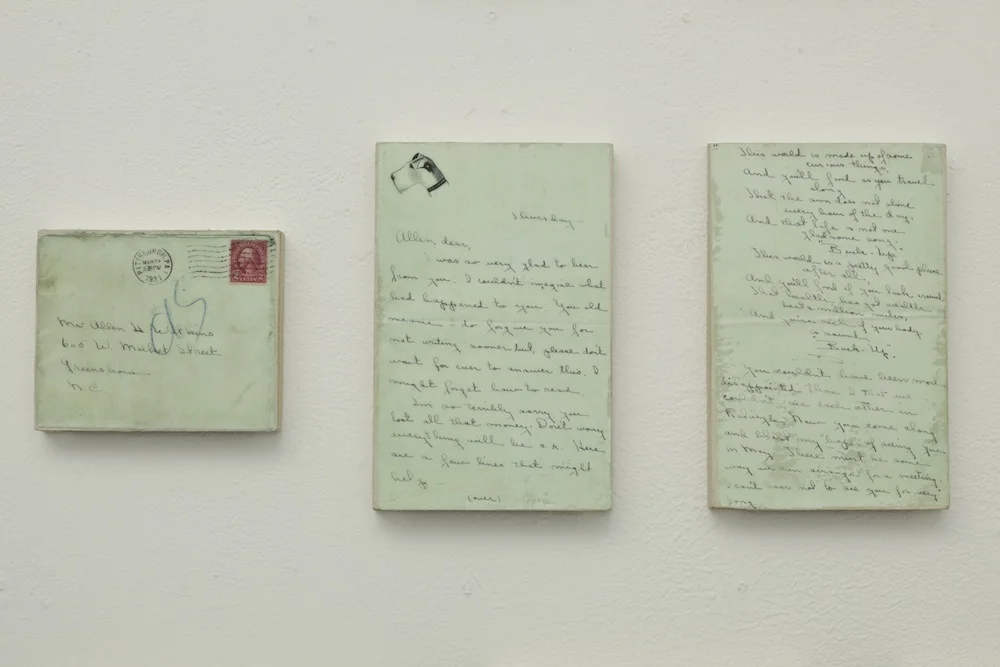 PITTSBURGH, PA.
MAR
PM
1931
Mr. Allen H.
600 W. Market Street
Greensboro
N.C.
Thursday —
Allen, dear,
I was so very glad to hear
from you. I couldn't imagine what
had happened to you. You old
meanie - do forgive you for
not writing sooner but, please don't
wait for ever to answer this. I
might forget how to read.
I'm so terribly sorry you
lost all that money. Don't worry
everything will be o.k. Here
are a few lines that might
help
(over)
This world is made up of some
curious things,
And you'll find as you travel
along
That the sun does not shine
every hour of the day,
And that life is not one
gladsome song.
"Buck-Up,
This world is a pretty good place
after all
And you'll find if you look around,
That health, has got wealth
beat a million miles,
And you're rich if your body
is sound
"Buck-Up".
You couldn't have been more
disappointed than I that we
couldn't see each other in
Raleigh. Now you come along
and blast my hopes of seeing you
in May. There must be some
way we can arrange for a meeting.
I can't bear not to see you for very
long.